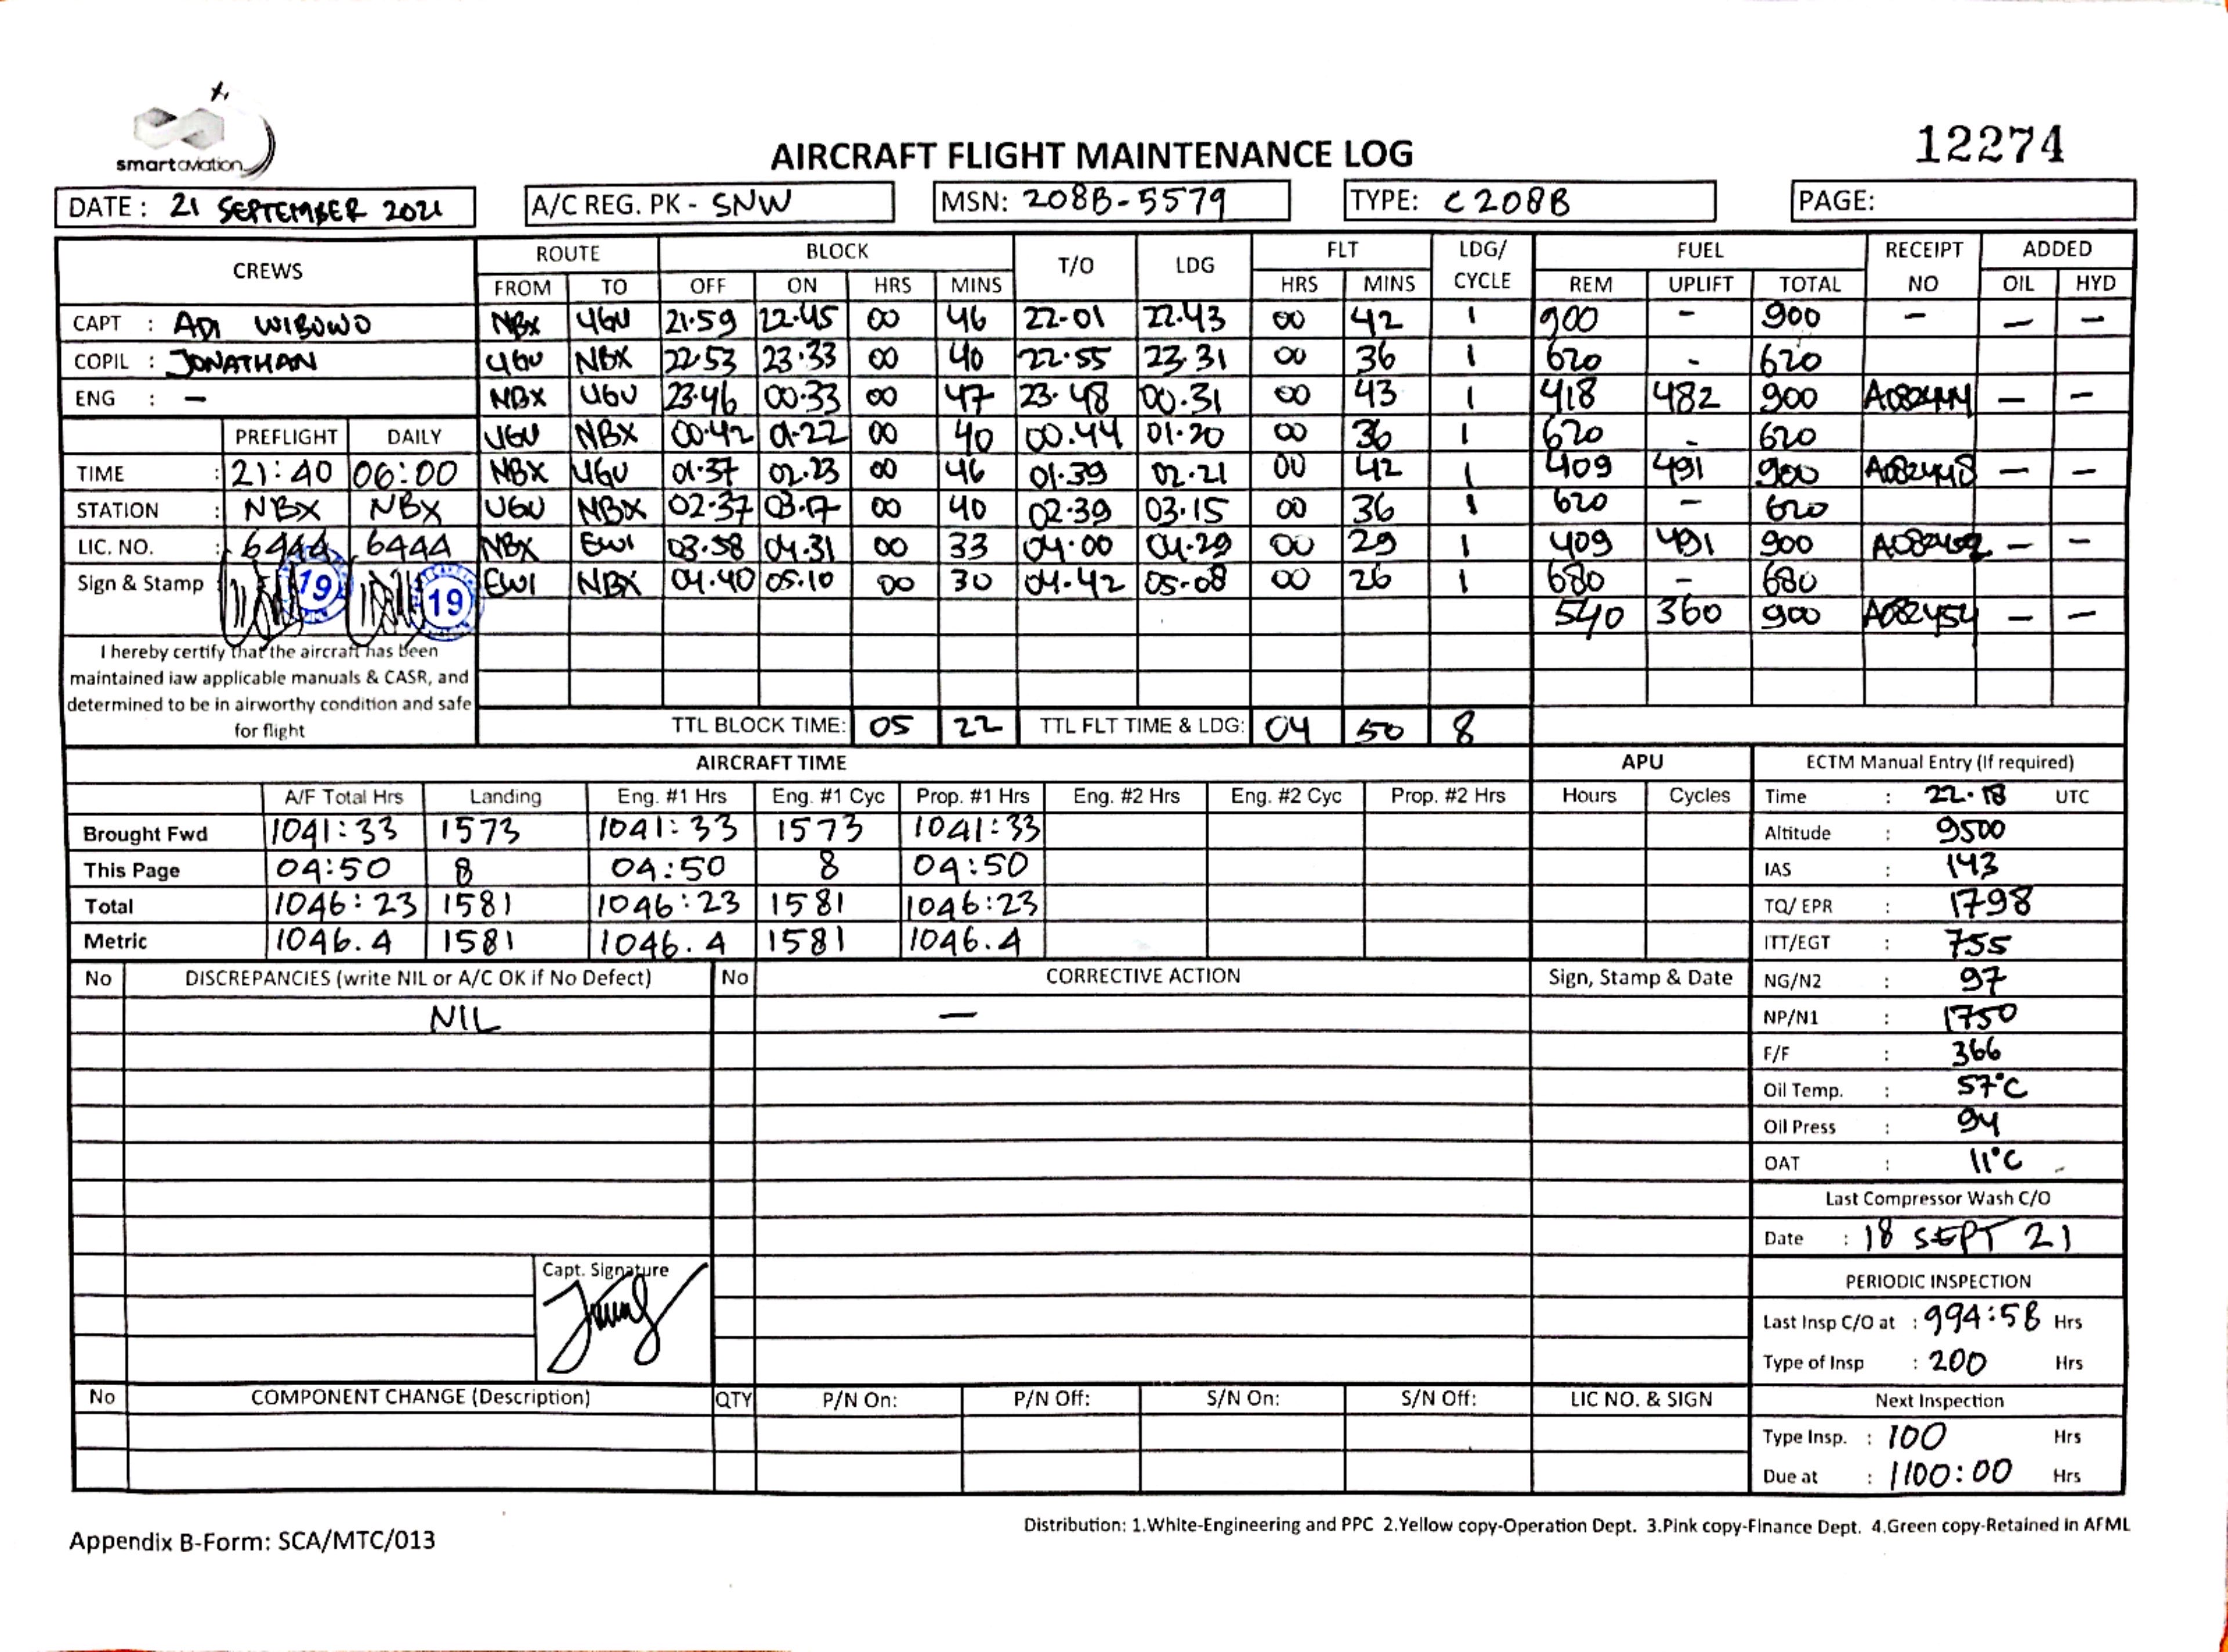 smart aviation
AIRCRAFT FLIGHT MAINTENANCE LOG
12274
DATE : 21 SEPTEMBER 2021 A/C REG. PK - SNW MSN: 208B-5579 TYPE: C208B PAGE:
CREWS ROUTE BLOCK T/O LDG FLT LDG/ CYCLE FUEL RECEIPT NO ADDED
FROM TO OFF ON HRS MINS HRS MINS REM UPLIFT TOTAL OIL HYD
CAPT : ADI WIBOWO NBX UGU 21.59 22.45 00 46 22-01 22.43 00 42 1 900 - 900 - - -
COPIL : JONATHAN UGU NBX 22.53 23.33 00 40 22.55 23.31 00 36 1 620 - 620
ENG : - NBX UGU 23.46 00.33 00 47 23.48 00.31 00 43 1 418 482 900 A082444 - -
PREFLIGHT DAILY UGU NBX 00.42 01.22 00 40 00.44 01.20 00 36 1 620 - 620
TIME : 21:40 06:00 NBX UGU 01.37 02.23 00 46 01.39 02.21 00 42 1 409 491 900 A082448 - -
STATION : NBX NBX UGU NBX 02.37 03.17 00 40 02.39 03.15 00 36 1 620 - 620
LIC. NO. : 6444 6444 NBX EWI 03.58 04.31 00 33 04.00 04.29 00 29 1 409 491 900 - -
Sign & Stamp 19 19 EWI NBX 04.40 05.10 00 30 04.42 05.08 00 26 1 680 - 680
540 360 900 A082454 - -
I hereby certify that the aircraft has been
maintained iaw applicable manuals & CASR, and
determined to be in airworthy condition and safe
for flight
TTL BLOCK TIME: 05 22 TTL FLT TIME & LDG: 04 50 8
AIRCRAFT TIME APU ECTM Manual Entry (If required)
A/F Total Hrs Landing Eng. #1 Hrs Eng. #1 Cyc Prop. #1 Hrs Eng. #2 Hrs Eng. #2 Cyc Prop. #2 Hrs Hours Cycles Time : 22.18 UTC
Brought Fwd 1041:33 1573 1041:33 1573 1041:33 Altitude : 9500
This Page 04:50 8 04:50 8 04:50 IAS : 143
Total 1046:23 1581 1046:23 1581 1046:23 TQ/ EPR : 1798
Metric 1046.4 1581 1046.4 1581 1046.4 ITT/EGT : 755
No DISCREPANCIES (write NIL or A/C OK if No Defect) No CORRECTIVE ACTION Sign, Stamp & Date NG/N2 : 97
NIL - NP/N1 : 1750
F/F : 366
Oil Temp. : 57°C
Oil Press : 94
OAT : 11°C
Last Compressor Wash C/O
Date : 18 SEPT 21
Capt. Signature
PERIODIC INSPECTION
Last Insp C/O at : 994:58 Hrs
Type of Insp : 200 Hrs
No COMPONENT CHANGE (Description) QTY P/N On: P/N Off: S/N On: S/N Off: LIC NO. & SIGN Next Inspection
Type Insp. : 100 Hrs
Due at : 1100:00 Hrs
Appendix B-Form: SCA/MTC/013
Distribution: 1.White-Engineering and PPC 2.Yellow copy-Operation Dept. 3.Pink copy-Finance Dept. 4.Green copy-Retained in AFML